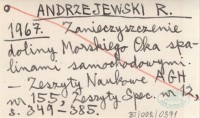 ANDRZEJEWSKI R.
1967. Zanieczyszczenie
doliny Morskiego Oka spa-
linami samochodowymi.
- Zeszyty Naukowe AGH
nr 155, Zeszyty Spec. nr 12,
s. 349-385.